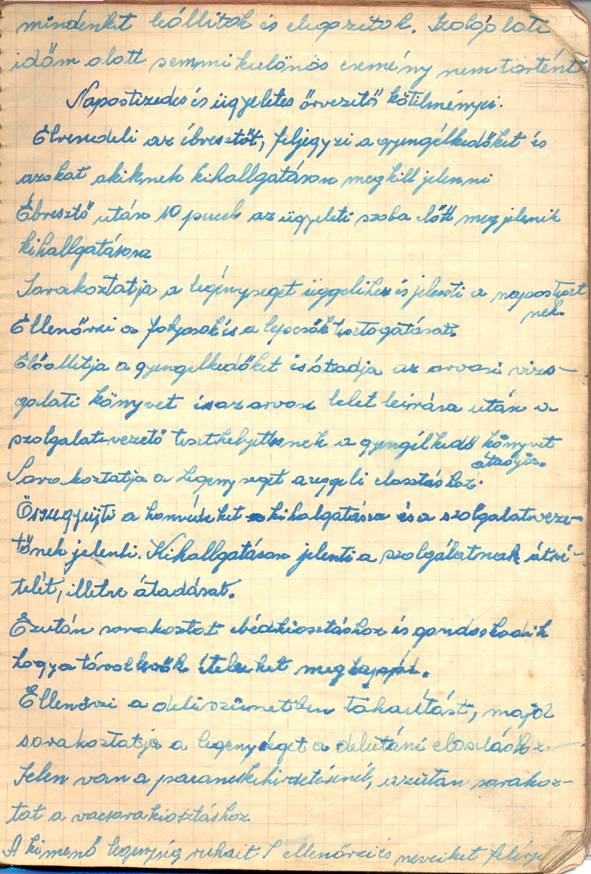 mindenkit leállitok és elegazitok. Szolgálati
időm alatt semmi különös esemény nem történt
Napostizedes és ügyeletes őrvezető kötelményei.
Elrendeli az ébresztőt, feljegyzi a gyengélkedőket és
azokat akiknek kihallgatáson meg kell jelenni
Ébresztő után 10 percek az ügyeleti szoba előtt megjelenik
kihallgatásra
Sorakoztatja a legénységet üggelihez és jelenti a napostiszt
nek.
Ellenőrzi a folyosok és a lepcsők tisztogatását.
Előallitja a gyengelkedőket és átadja az orvosi vizs-
galati könyvet és az orvosi lelet leirása után a
szolgalatvezető tiszthelyettesnek a gyengélkedő könyvet
átadja.
Sorakoztatja a legenyseget a reggeli elosztáshoz.
Összegyűjti a honvédeket kihalgatásra és a szolgalatveze-
tőnek jelenti. Kihallgatáson jelenti a szolgálatnak átvé-
telét, illetve átadását.
Ezután sorakoztat ebédkiosztáshoz és gondoskodik
hogy a távollevők ételeket megkapják.
Ellenőrzi a deli szünetben takarítást, majd
sorakoztatja a legenységet a delutáni elosztáshoz
Jelen van a parancskihirdetésénél, ezután sorakoz-
tat a vacsorakiosztáshoz.
A kimenő legenység ruhait ellenőrzi és neveiket felirja